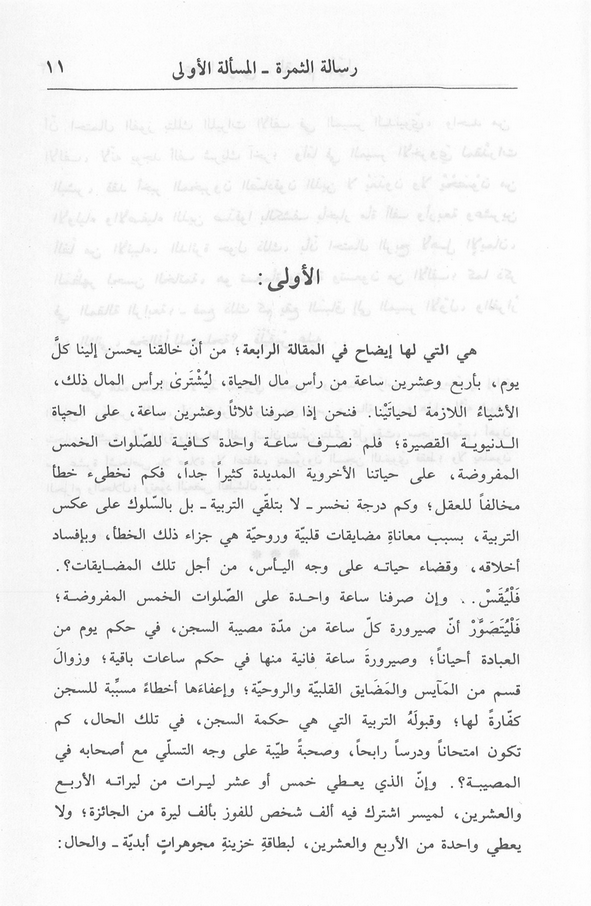 رسالة الثمرة ـ المسألة الأولى ١١
الأولى :
هي التي لها إيضاح في المقالة الرابعة؛ من أنّ خالقنا يحسن إلينا كلَّ
يوم، بأربع وعشرين ساعة من رأس مال الحياة، ليُشْتَرىٰ برأس المال ذلك،
الأشياءُ اللازمة لحياتَيْنا. فنحن إذا صرفنا ثلاثاً وعشرين ساعة، على الحياة
الدنيوية القصيرة؛ فلم نصرف ساعة واحدة كافية للصّلوات الخمس
المفروضة، على حياتنا الأخروية المديدة كثيراً جداً، فكم نخطىء خطأ
مخالفاً للعقل؛ وكم درجة نخسر ـ لا بتلقّي التربية ـ بل بالسّلوك على عكس
التربية، بسبب معاناةِ مضايقات قلبيّة وروحيّة هي جزاء ذلك الخطأ، وبإفساد
أخلاقه، وقضاء حياته على وجه اليأس، من أجل تلك المضايقات؟.
فَلْيُقَسْ. . وإن صرفنا ساعة واحدة على الصّلوات الخمس المفروضة؛
فَلْيُتَصَوَّرْ أنّ صيرورة كلّ ساعة من مدّة مصيبة السجن، في حكم يوم من
العبادة أحياناً؛ وصيرورةَ ساعة فانية منها في حكم ساعات باقية؛ وزوالَ
قسم من المَآيس والمَضَايق القلبيّة والروحيّة؛ وإعفاءَها أخطاءً مسبِّبة للسجن
كفّارةً لها؛ وقبولَهُ التربية التي هي حكمة السجن، في تلك الحال، كم
تكون امتحاناً ودرساً رابحاً، وصحبةً طيّبة على وجه التسلّي مع أصحابه في
المصيبة؟. وإنّ الذي يعطي خمس أو عشر ليرات من ليراته الأربع
والعشرين، لميسر اشترك فيه ألف شخص للفوز بألف ليرة من الجائزة؛ ولا
يعطي واحدة من الأربع والعشرين، لبطاقةِ خزينةِ مجوهراتٍ أبديّة ـ والحال: